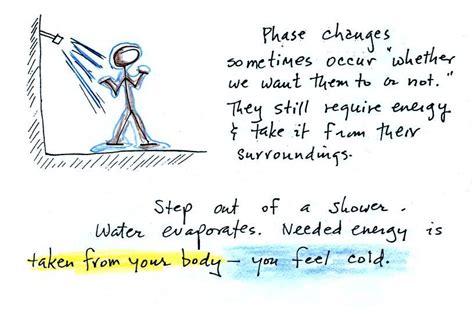 Phase changes
sometimes occur "whether
we want them to or not."
They still require energy
& take it from their
surroundings.
Step out of a shower.
Water evaporates. Needed energy is
taken from your body – you feel cold.